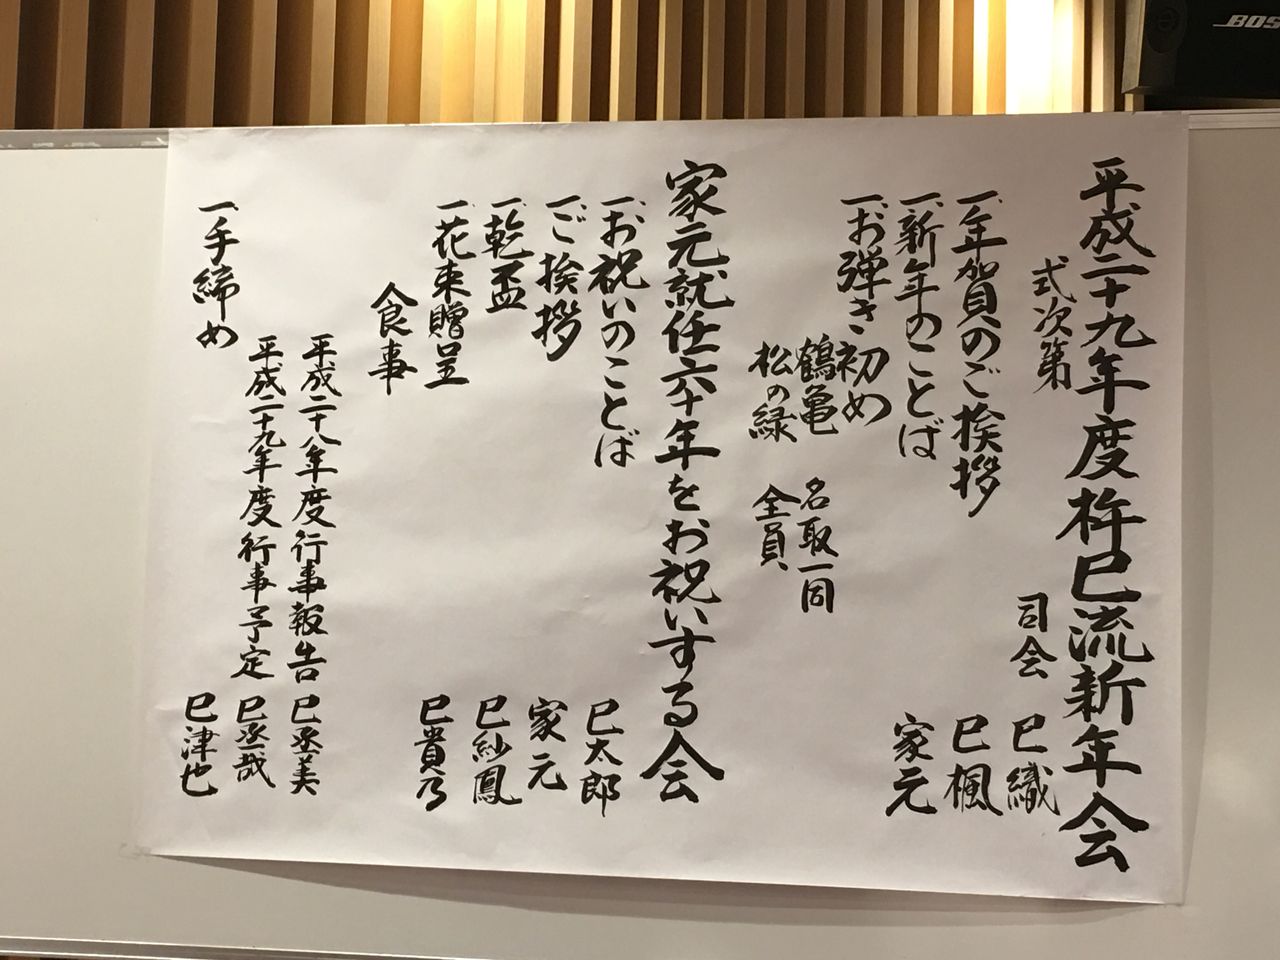 平成二十九年度杵巳流新年会
式次第
司会 巳織
一、年賀のご挨拶 巳楓
一、新年のことば 家元
一、お弾き初め
鶴亀 名取一同
松の緑 全員
家元就任六十年をお祝いする会
一、お祝いのことば 巳太郎
一、ご挨拶 家元
一、乾盃 巳紗鳳
一、花束贈呈 巳貴乃
食事
平成二十八年度行事報告 巳丞美
平成二十九年度行事予定 巳丞哉
一、手締め 巳津也
BOS